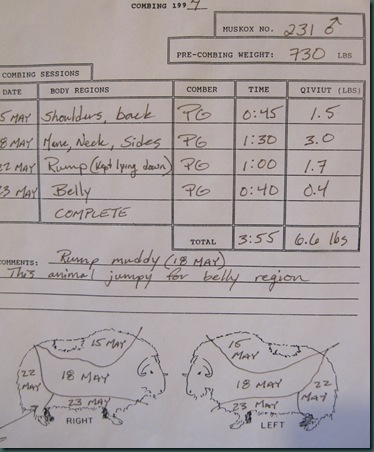 COMBING 1997
MUSKOX NO. 231 ♂
PRE-COMBING WEIGHT: 730 LBS
COMBING SESSIONS
DATE BODY REGIONS COMBER TIME QIVIUT (LBS)
5 MAY Shoulders, back PG 0:45 1.5
8 MAY Mane, Neck, Sides PG 1:30 3.0
22 MAY Rump (kept lying down) PG 1:00 1.7
23 MAY Belly PG 0:40 0.4
COMPLETE
TOTAL 3:55 6.6 lbs
COMMENTS: Rump muddy (18 MAY)
This animal jumpy for belly region
15 MAY
22 MAY
18 MAY
23 MAY
RIGHT
15 MAY
18 MAY
22 MAY
23 MAY
LEFT